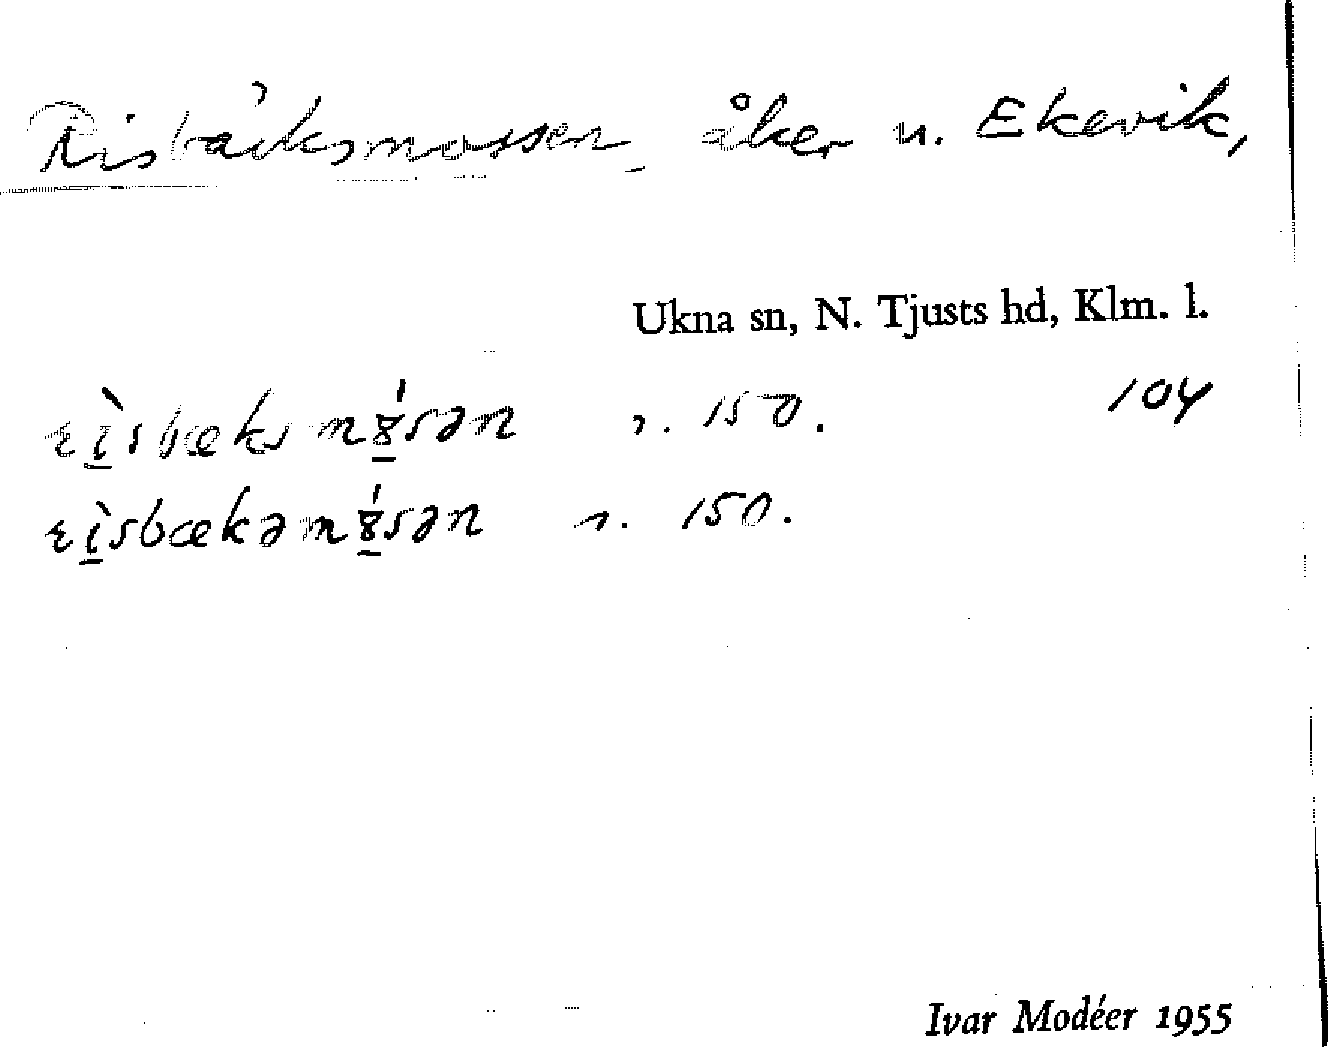 Risbäcksmossen, åker u. Ekevik,
Ukna sn, N. Tjusts hd, Klm. l.
104
ɾì̠sbæksm8̠́sən s. 150.
ɾì̠sbækəm8̠́sən s. 150.
Ivar Modéer 1955